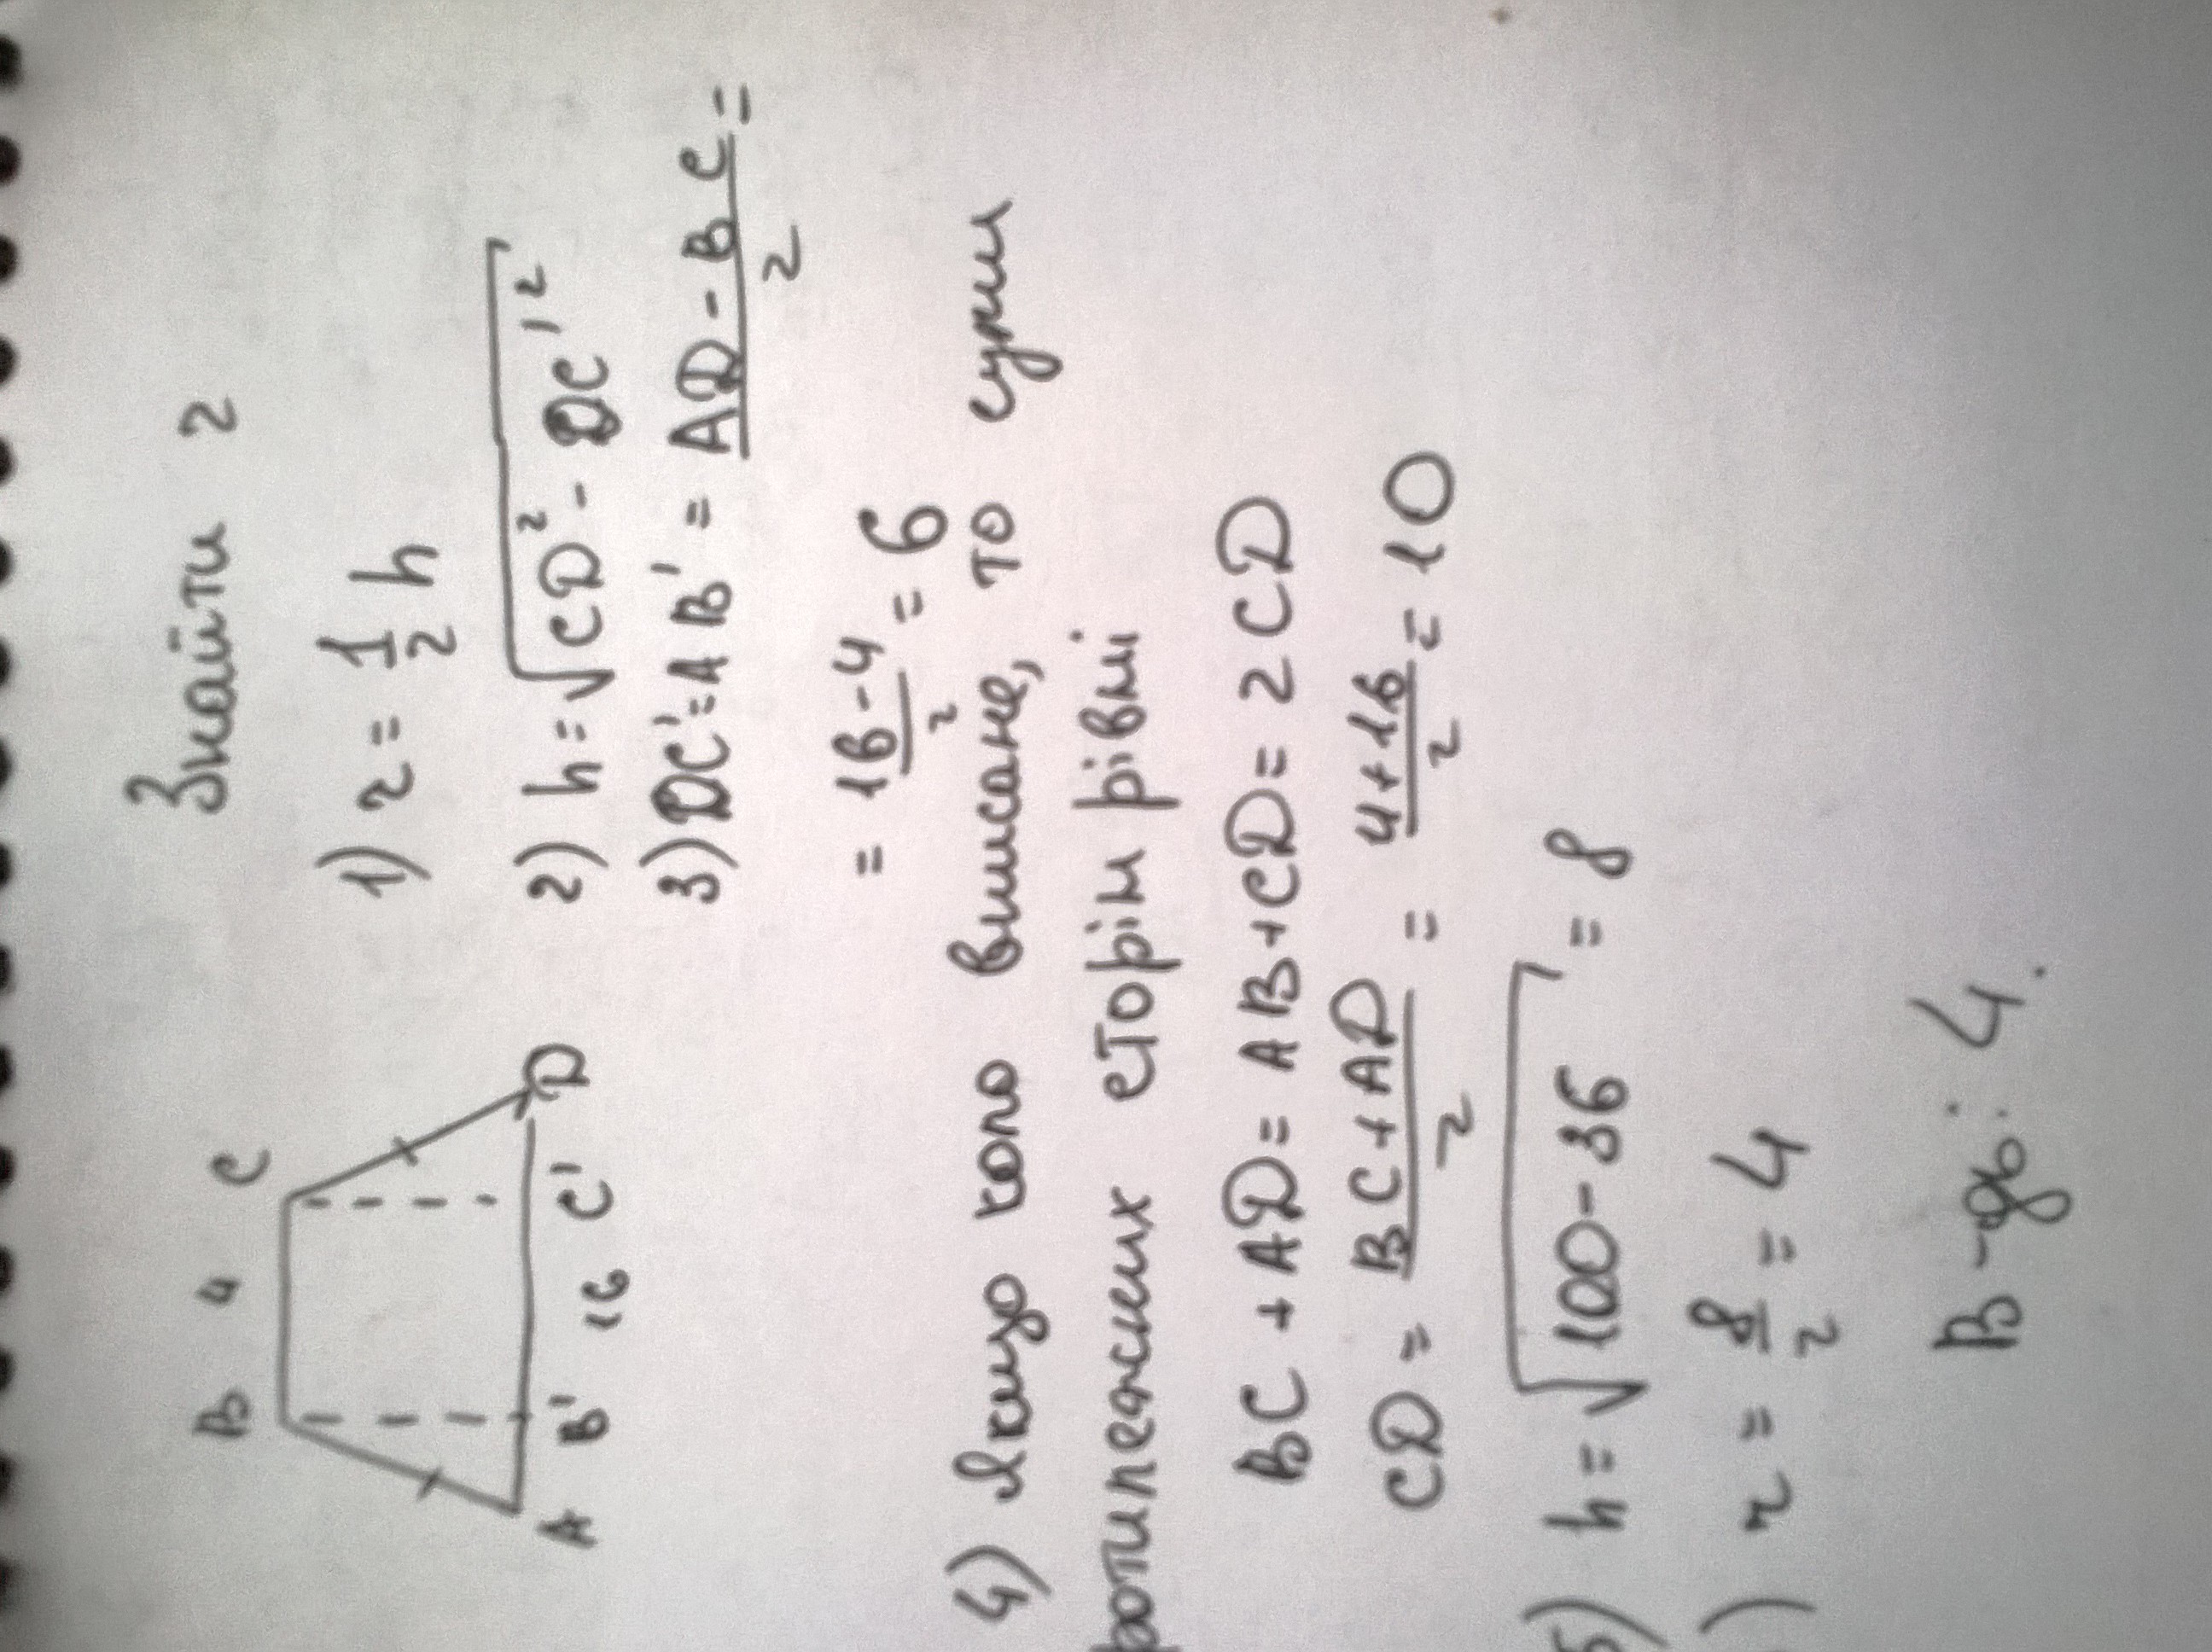 Знайти r
B 4 C
A B' 16 C' D
1) r = 1/2 h
2) h = √(CD² - DC'²)
3) DC' = AB' = (AD - BC)/2 =
= (16 - 4)/2 = 6
4) Якщо коло вписане, то суми
ротилежних сторін рівні
BC + AD = AB + CD = 2CD
CD = (BC + AD)/2 = (4 + 16)/2 = 10
5) h = √(100 - 36) = 8
) r = 8/2 = 4
В-дь: 4.